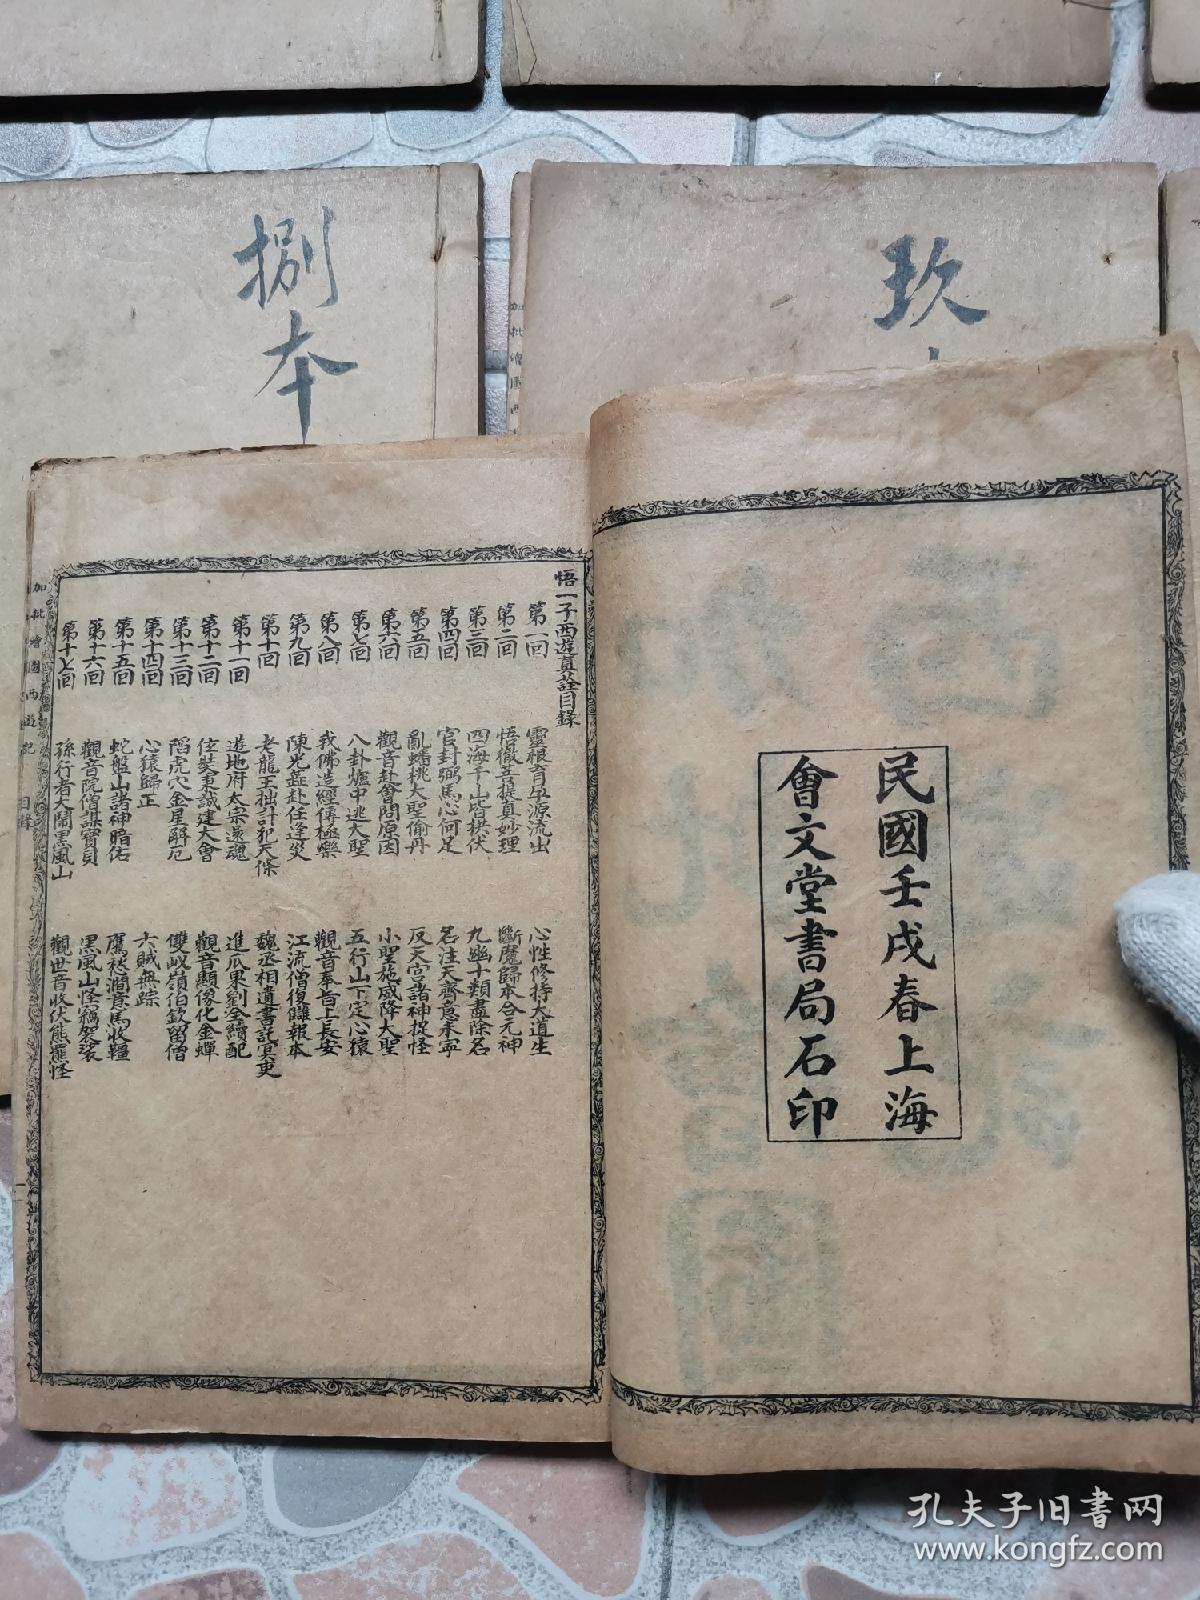 捌本
玖
民國壬戌春上海
會文堂書局石印
悟一子西遊真詮目錄
第一回 靈根育孕源流出 心性修持大道生
第二回 悟徹菩提真妙理 斷魔歸本合元神
第三回 四海千山皆拱伏 九幽十類盡除名
第四回 官封弼馬心何足 名注天齊意未寧
第五回 亂蟠桃大聖偷丹 反天宮諸神捉怪
第六回 觀音赴會問原因 小聖施威降大聖
第七回 八卦爐中逃大聖 五行山下定心猿
第八回 我佛造經傳極樂 觀音奉旨上長安
第九回 陳光蕊赴任逢災 江流僧復讎報本
第十回 老龍王拙計犯天條 魏丞相遺書託冥吏
第十一回 遊地府太宗還魂 進瓜果劉全續配
第十二回 玄奘秉誠建大會 觀音顯像化金蟬
第十三回 陷虎穴金星解厄 雙岐嶺伯欽留僧
第十四回 心猿歸正 六賊無踪
第十五回 蛇盤山諸神暗佑 鷹愁澗意馬收韁
第十六回 觀音院僧謀寶貝 黑風山怪竊袈裟
第十七回 孫行者大鬧黑風山 觀世音收伏熊羆怪
加批繪圖西遊記 目錄
孔夫子旧書网
www.kongfz.com